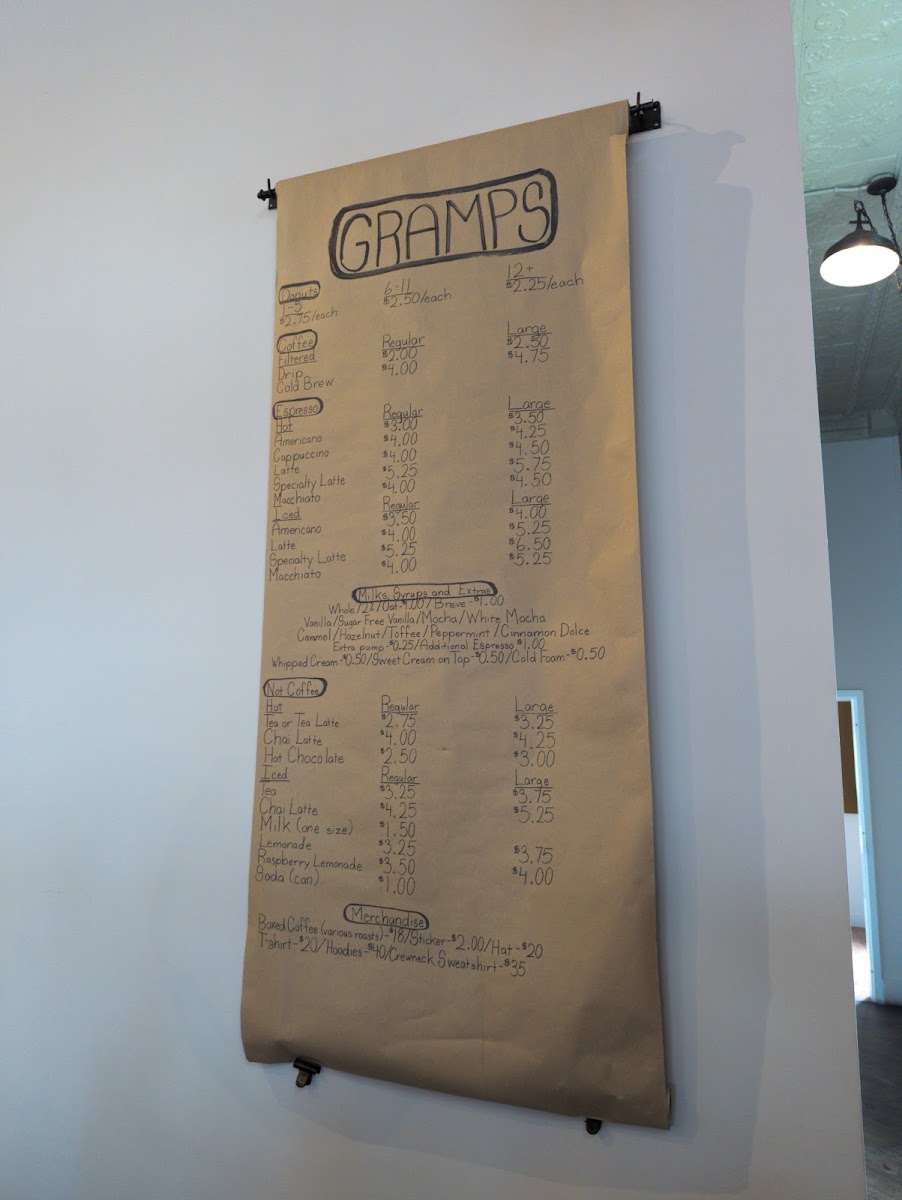 GRAMPS
Donuts
1-5 6-11 12+
$2.75/each $2.50/each $2.25/each
Coffee
Filtered Regular Large
Drip $2.00 $2.50
Cold Brew $4.00 $4.75
Espresso
Hot Regular Large
Americano $3.00 $3.50
Cappuccino $4.00 $4.25
Latte $4.00 $4.50
Specialty Latte $5.25 $5.75
Macchiato $4.00 $4.50
Iced Regular Large
Americano $3.50 $4.00
Latte $4.00 $5.25
Specialty Latte $5.25 $6.50
Macchiato $4.00 $5.25
Milks, Syrups and Extras
Whole/2%/Oat-$1.00/Breve-$1.00
Vanilla/Sugar Free Vanilla/Mocha/White Mocha
Carmel/Hazelnut/Toffee/Peppermint/Cinnamon Dolce
Extra pump-$0.25/Additional Espresso $1.00
Whipped Cream-$0.50/Sweet Cream on Top-$0.50/Cold Foam-$0.50
Not Coffee
Hot Regular Large
Tea or Tea Latte $2.75 $3.25
Chai Latte $4.00 $4.25
Hot Chocolate $2.50 $3.00
Iced Regular Large
Tea $3.25 $3.75
Chai Latte $4.25 $5.25
Milk (one size) $1.50
Lemonade $3.25 $3.75
Raspberry Lemonade $3.50 $4.00
Soda (can) $1.00
Merchandise
Boxed Coffee (various roasts)-$18/Sticker-$2.00/Hat-$20
T-shirt-$20/Hoodies-$40/Crewneck Sweatshirt-$35